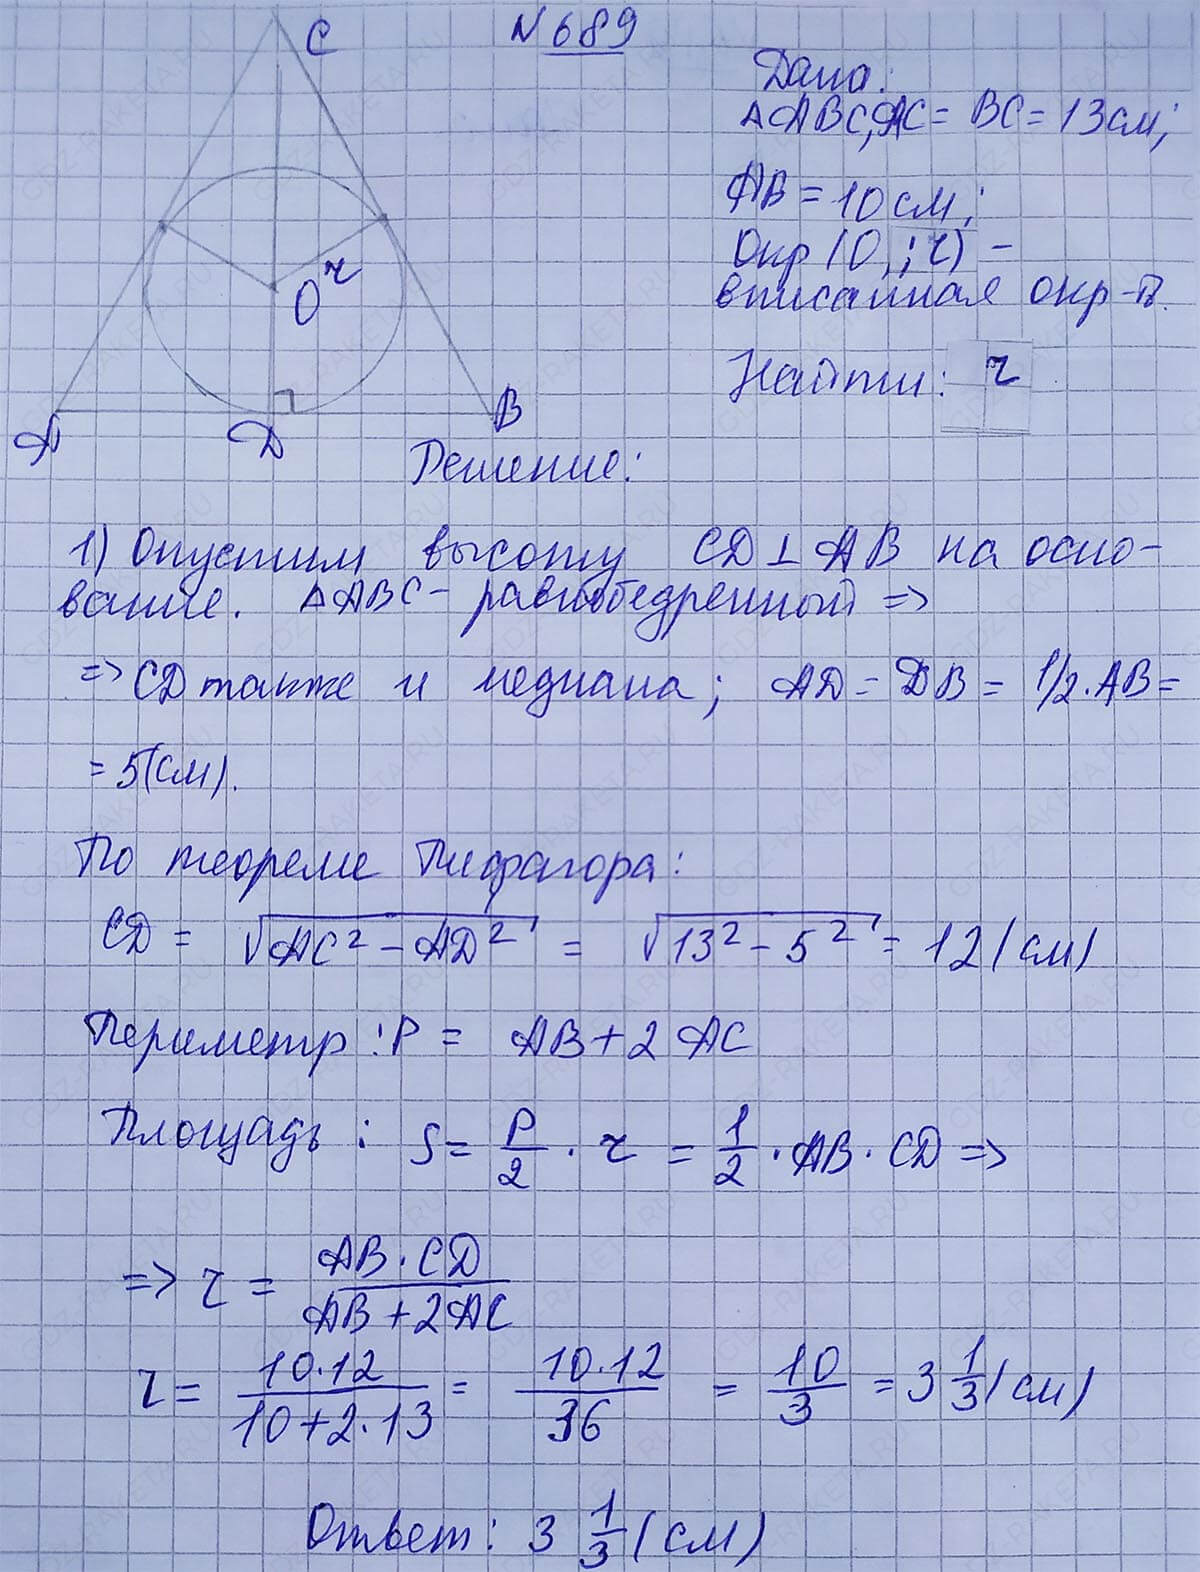 N 689
C
Дано:
△ABC, AC = BC = 13 см;
AB = 10 см;
Окр (O; r) -
вписанная окр-ть.
Найти: r
O r
A
D
B
Решение:
1) Опустим высоту CD ⊥ AB на осно-
вание. △ABC - равнобедренный =>
=> CD также и медиана; AD = DB = 1/2 · AB =
= 5 (см).
По теореме Пифагора:
CD = √(AC² - AD²) = √(13² - 5²) = 12 (см)
Периметр: P = AB + 2 AC
Площадь: S = P/2 · r = 1/2 · AB · CD =>
=> r = AB · CD / AB + 2AC
r = 10·12 / 10+2·13 = 10·12 / 36 = 10/3 = 3 1/3 (см)
Ответ: 3 1/3 (см)